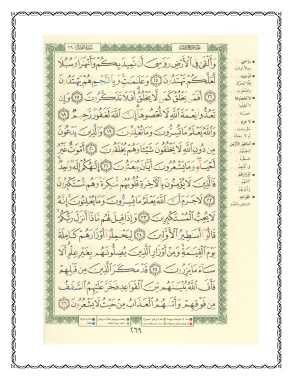 وَأَلْقَىٰ فِي ٱلْأَرْضِ رَوَٰسِيَ أَن تَمِيدَ بِكُمْ وَأَنْهَٰرًا وَسُبُلًا
لَّعَلَّكُمْ تَهْتَدُونَ ١٥ وَعَلَٰمَٰتٍ وَبِٱلنَّجْمِ هُمْ يَهْتَدُونَ
١٦ أَفَمَن يَخْلُقُ كَمَن لَّا يَخْلُقُ أَفَلَا تَذَكَّرُونَ ١٧ وَإِن
تَعُدُّوا۟ نِعْمَةَ ٱللَّهِ لَا تُحْصُوهَآ إِنَّ ٱللَّهَ لَغَفُورٌ رَّحِيمٌ ١٨
وَٱللَّهُ يَعْلَمُ مَا تُسِرُّونَ وَمَا تُعْلِنُونَ ١٩ وَٱلَّذِينَ يَدْعُونَ
مِن دُونِ ٱللَّهِ لَا يَخْلُقُونَ شَيْـًٔا وَهُمْ يُخْلَقُونَ ٢٠ أَمْوَٰتٌ غَيْرُ
أَحْيَآءٍ وَمَا يَشْعُرُونَ أَيَّانَ يُبْعَثُونَ ٢١ إِلَٰهُكُمْ إِلَٰهٌ وَٰحِدٌ
فَٱلَّذِينَ لَا يُؤْمِنُونَ بِٱلْءَاخِرَةِ قُلُوبُهُم مُّنكِرَةٌ وَهُم مُّسْتَكْبِرُونَ
٢٢ لَا جَرَمَ أَنَّ ٱللَّهَ يَعْلَمُ مَا يُسِرُّونَ وَمَا يُعْلِنُونَ إِنَّهُۥ
لَا يُحِبُّ ٱلْمُسْتَكْبِرِينَ ٢٣ وَإِذَا قِيلَ لَهُم مَّاذَآ أَنزَلَ رَبُّكُمْ
قَالُوٓا۟ أَسَٰطِيرُ ٱلْأَوَّلِينَ ٢٤ لِيَحْمِلُوٓا۟ أَوْزَارَهُمْ كَامِلَةً
يَوْمَ ٱلْقِيَٰمَةِ وَمِنْ أَوْزَارِ ٱلَّذِينَ يُضِلُّونَهُم بِغَيْرِ عِلْمٍ أَلَا
سَآءَ مَا يَزِرُونَ ٢٥ قَدْ مَكَرَ ٱلَّذِينَ مِن قَبْلِهِمْ
فَأَتَى ٱللَّهُ بُنْيَٰنَهُم مِّنَ ٱلْقَوَاعِدِ فَخَرَّ عَلَيْهِمُ ٱلسَّقْفُ
مِن فَوْقِهِمْ وَأَتَىٰهُمُ ٱلْعَذَابُ مِنْ حَيْثُ لَا يَشْعُرُونَ ٢٦
٢٦٩